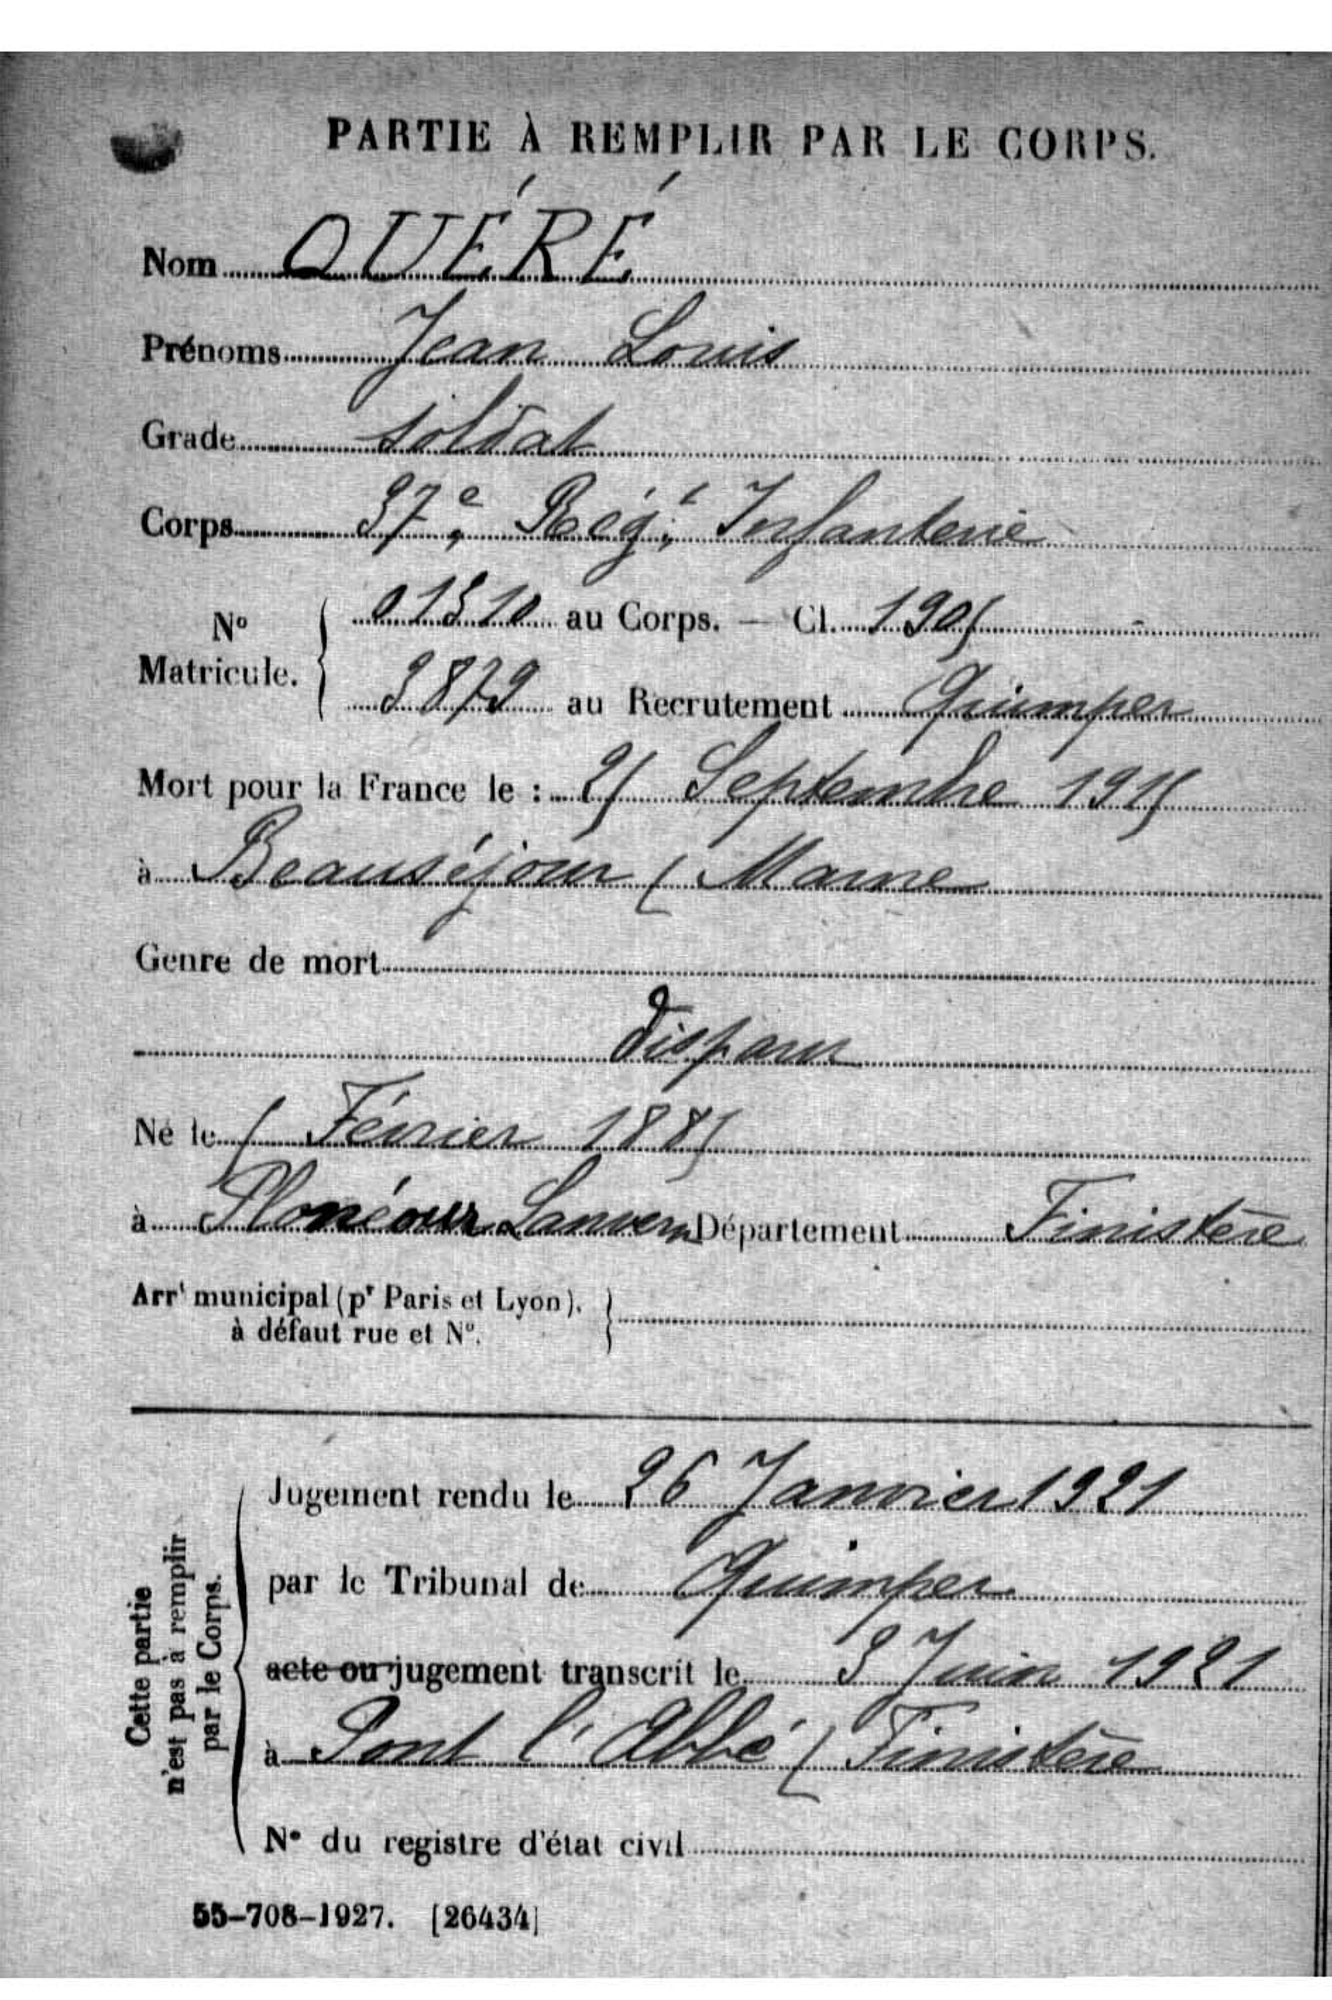 PARTIE À REMPLIR PAR LE CORPS.
Nom QUÉRÉ
Prénoms Jean Louis
Grade soldat
Corps 37e Régt Infanterie
No Matricule. { 01510 au Corps. — Cl. 1905
3879 au Recrutement Quimper
Mort pour la France le : 25 Septembre 1915
à Beauséjour ( Marne
Genre de mort
disparu
Né le 5 Février 1885
à Plonéour Lanvern Département Finistère
Arrt municipal (pr Paris et Lyon), }
à défaut rue et No.
Cette partie
n'est pas à remplir
par le Corps.
Jugement rendu le 26 Janvier 1921
par le Tribunal de Quimper
acte ou jugement transcrit le 3 Juin 1921
à Pont l'Abbé ( Finistère
No du registre d'état civil
55-708-1927. [26434]